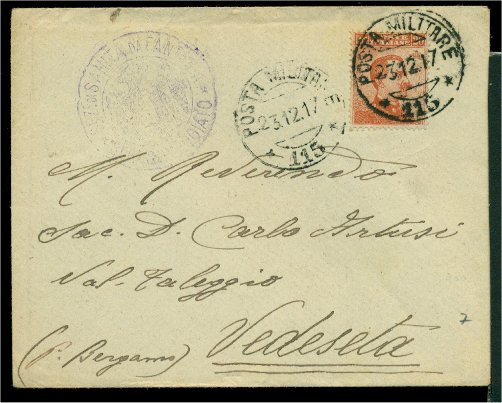 POSTA MILITARE
23.12.17
115
POSTA MILITARE
23.12.17
115
M. Reverendo
Sac. D. Carlo Artusi
Val Taleggio
(P. Bergamo) Vedeseta
7